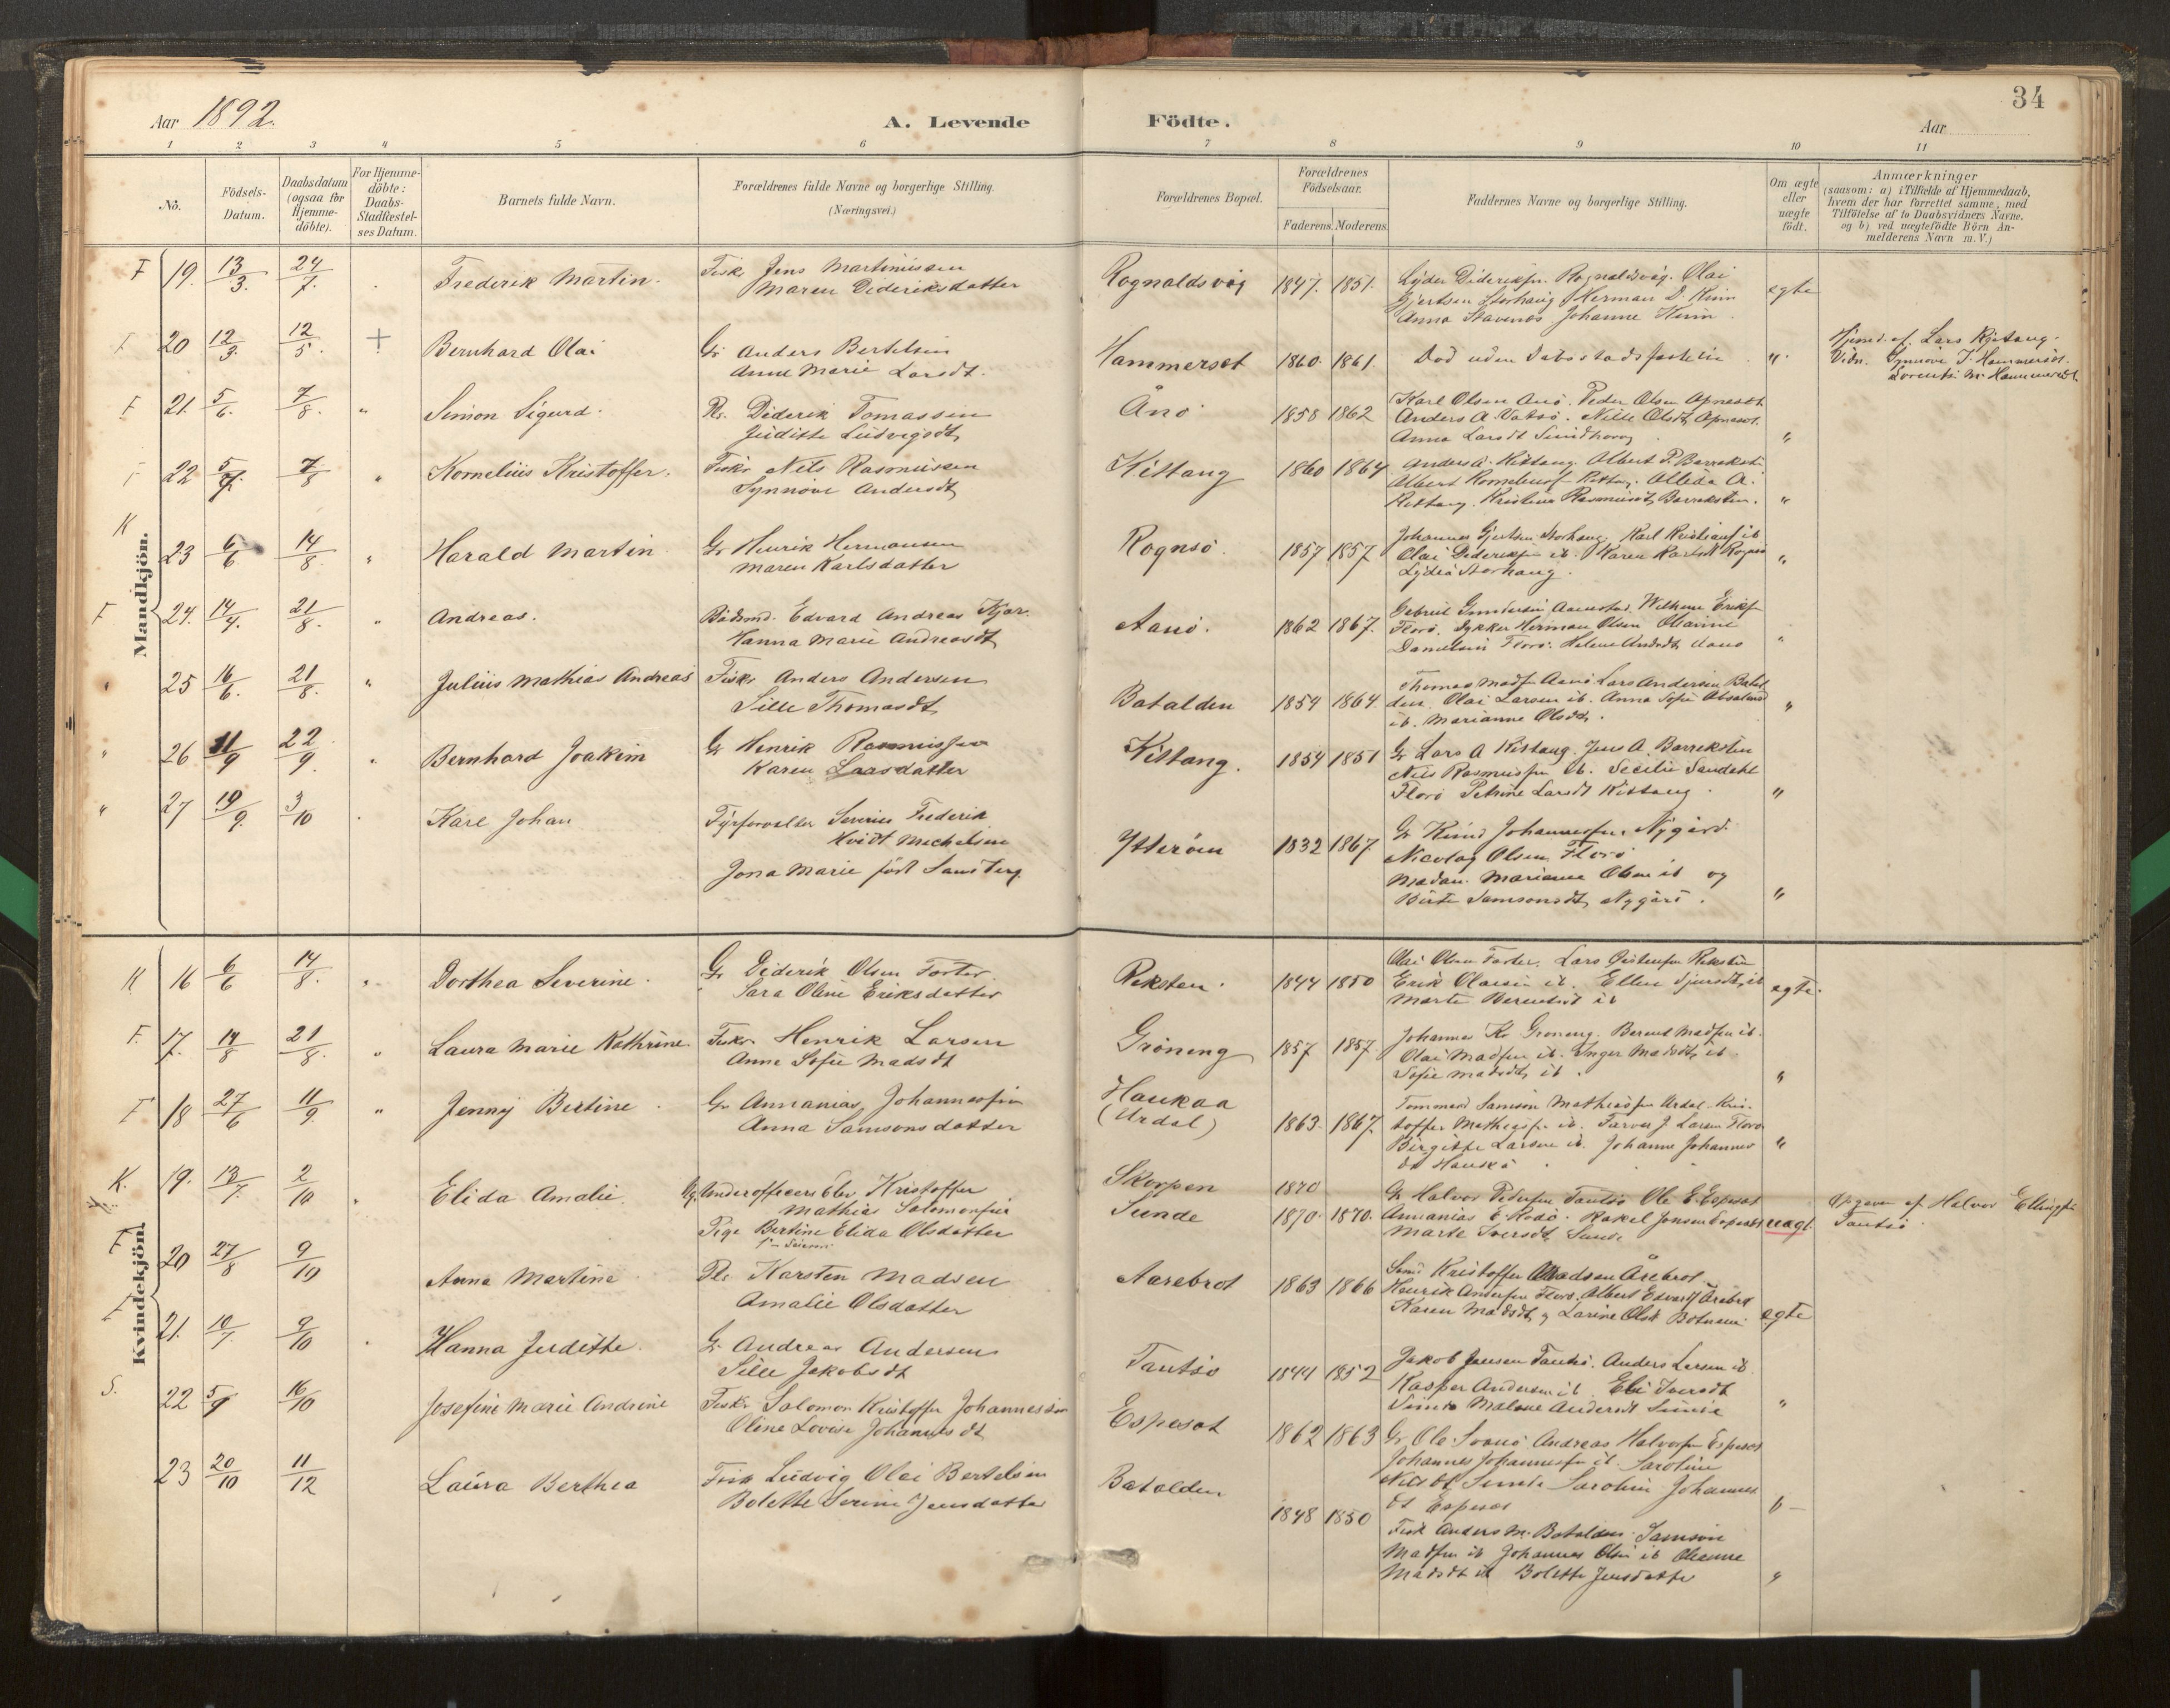 34
Aar 1892.
A. Levende Födte.
Aar
1 2 3 4 5 6 7 8 9 10 11
No.
Födsels-
Datum.
Daabsdatum
(ogsaa for
Hjemme-
döbte).
For Hjemme-
döbte:
Daabs-
Stadfæstel-
ses Datum.
Barnets fulde Navn.
Forældrenes fulde Navne og borgerlige Stilling.
(Næringsvei.)
Forældrenes Bopæl.
Forældrenes
Födselsaar.
Faderens. Moderens.
Faddernes Navne og borgerlige Stilling.
Om ægte
eller
uægte
födt.
Anmærkninger
(saasom: a) i Tilfælde af Hjemmedaab,
hvem der har forrettet samme, med
Tilföielse af to Daabsvidners Navne.
og b) ved uægtefödte Börn An-
melderens Navn m. V.)
Mandkjön.
F 19. 13/3. 24/7. Frederik Martin. Fisk. Jens Martinussen
Maren Dideriksdatter
Rognaldsvåg 1847. 1851. Lyder Dideriksen Rognaldsvåg. Olai
Gjertsen Storhaug Herman D. Kinn
Anna Stavenes Johanne Kinn egte
F 20 12/3. 12/5. + Bernhard Olai Gr Anders Bertelsen
Anne Marie Larsdt.
Hammerset 1860. 1861. Död uden Dabsstadfæstelse "
Hjemd. af. Lars Kittang.
Vidn. Synnove J. Hammerset.
Lorents M. Hammerset
F 21. 5/6. 7/8. " Simon Sigurd. Pl. Diderik Tomassen
Juditte Ludvigsdt
Ånö 1858 1862 Karl Olsen Anö. Peder Olsen Apneset
Anders A. Vatsö. Nille Olsdt, Apneset.
Anna Larsdt "
F 22 5/7. 7/8 " Kornelius Kristoffer. Fisk Nils Rasmussen
Synnöve Andersdt
Kittang 1860 1864 Anders A. Kittang. Albert P. Barrekst.
Albert Kittang. Allida A.
Kittang. Kristine Rasmusdt, Barreksten. "
K 23 6/6 14/8. " Harald Martin Gr Henrik Hermansen
Maren Karlsdatter
Rognsö. 1857 1857 Johannes Gjertsen Storhaug. Karl ib
Olai Dideriksen ib. Karen Karlsdt Rognsö
Lydia Storhaug. "
F. 24. 14/4. 21/8. " Andreas. Edvard Andreas Kjær.
Hanna Marie Andreasdt
Aanö. 1862 1867. Gabriel Gundersen
Florö. Herman Olsen
Florö. Helene "
" 25 16/6. 21/8. " Julius Mathias Andreas Fisk Anders Andersen
Sille Thomasdt
Batalden 1854 1864. Thomas Madsen Aanö Lars Andersen Batal
den, Olai Larsen ib. Anna Sofie
ib. Marianne Olsdt. "
" 26 11/9 22/9. " Bernhard Joakim Gr Henrik Rasmussen
Karen Larsdatter
Kittang. 1854 1851 Gr Lars A Kittang. Jens A. Barreksten
Nils Rasmussen ib. Secilie Sandahl
Florö Petrine Larsdt Kittang. "
" 27 19/9. 3/10 . Karl Johan Fyrforvalter Severin Frederik
Hvidt Michelsen
Jona Marie födt
Ytteröen 1832 1867. Gr Knud Johannessen Nygård.
Nicolay Olsen Florö
Madam Marianne Olsen ib og
Birte Samsonsdt, Nygård. "
Kvindekjön.
K 16 6/6 14/8. " Dorthea Severine. Gr Diderik Olsen Forter.
Sara Oline Eriksdatter
Reksten. 1844 1850 Olai Olsen Forter. Lars Reksten
Erik Olaisen ib. Ellen ib
Marte Berentsdt ib egte.
F. 17. 14/8 21/8. " Laura Marie Kathrine. Fisk. Henrik Larsen
Anne Sofie Madsdt
Gröneng 1857 1857. Johannes Kr Gröneng. Berent Madsen ib.
Olai Madsen ib. Inger Madsdt, ib.
Sofie Madsdt, ib. "
F 18 27/6 11/9. " Jenny Bertine. Gr Annanias Johannessen
Anna Samsonsdatter
Haukaa
(Urdal) 1863. 1867. Samson Mathiassen Ardal Kris-
toffer Mathiassen ib. J. Larsen Florö
Birgitte Larsen ib. Johanne Johannes
dt Haukå "
K. 19. 13/7. 2/10 " Elida Amalie Underofficers Elev Kristoffer
Mathias Salomonsen
Pige Bertine Elida Olsdatter
Skorpen 1870
Sunde 1870. Gr Halvor Pedersen Tansö Ole E. Espeset
Annanias E. Rödö. Rakel Jonsen Espeset
Marte Iversdt, Sunde uægt. Opgiven af Halvor
Tansö
F 20 27/8 9/10 Anna Martine Pl. Karsten Madsen
Amalie Olsdatter
Aarebrot 1863 1866 Kristoffer Madsen Årebrot
Henrik Andersen Florö. Albert Årebrot
Karen Madsdt, og Larine Olsdt Botnene egte
F 21. 10/7. 9/10 . Hanna Juditte. Gr Andreas Andersen
Sille Jakobsdt
Tansö 1844 1852 Jakob Jensen Tansö. Anders Larsen ib
Kasper Andersen ib. Eli Iversdt
Malene Andersdt Sunde "
S. 22 5/9 16/10 Josefine Marie Andrine Fisk Salomon Kristoffer Johannessen
Oline Lovise Johannesdt
Espeset 1862 1863 Gr Ole Svanö Andreas Halvorsen Espeset
Johannes Johannessen ib. Saroline
Nilsdt Sunde Saroline Johannes
dt Espeset "
23 20/10 11/12 Laura Berthea Fisk Ludvig Olai Bertelsen
Bolette Serine Jensdatter
Batalden 1848 1850 Fisk Anders M. Batalden. Samson
Madsen ib Johannes Olsen ib Oleanne
Madsdt ib Bolette Jensdatter "